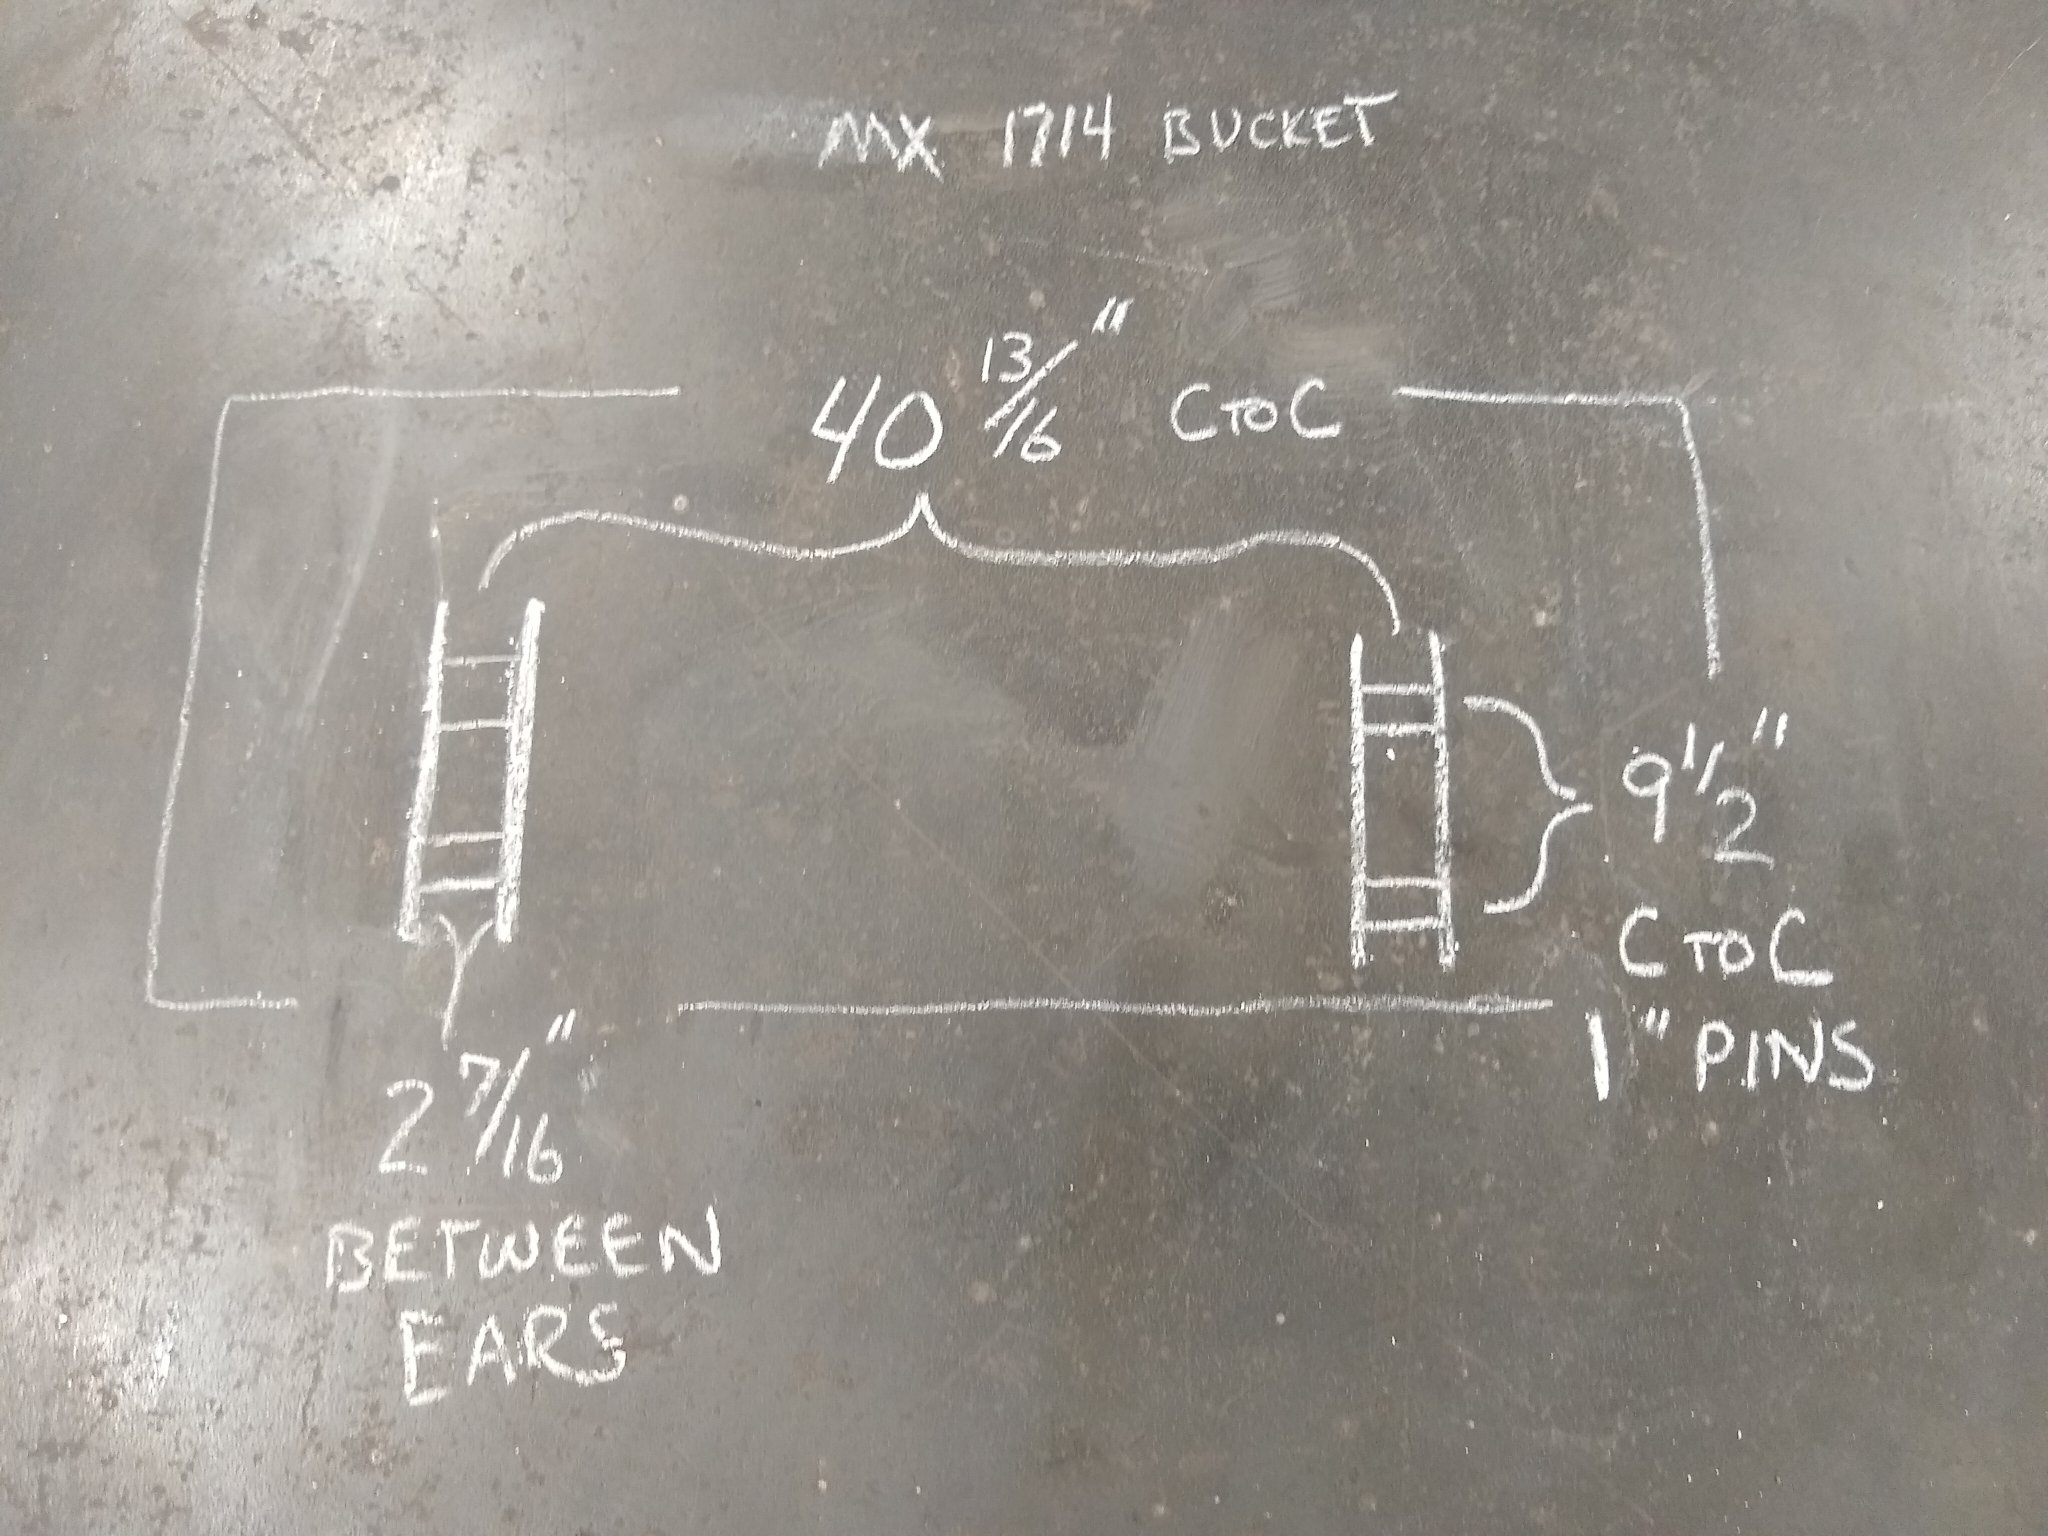 MX 1714 BUCKET
40 13/16" C TO C
9 1/2"
C TO C
1" PINS
2 7/16"
BETWEEN
EARS